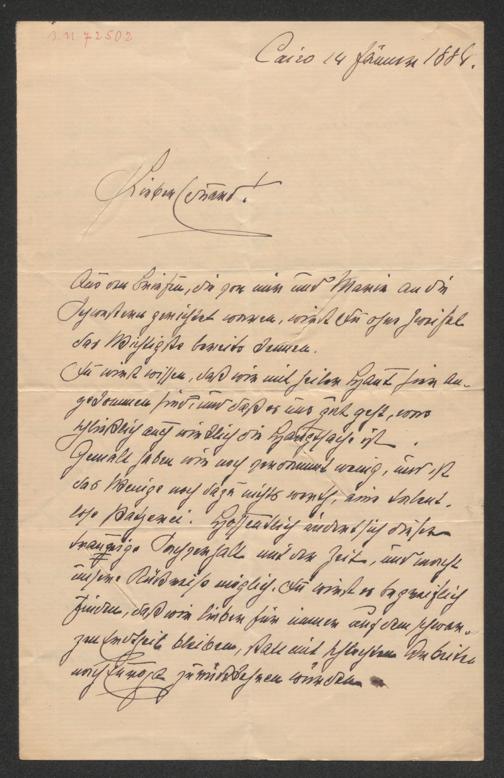 I.N. 72502
Cairo 14 Jänner 1884.
Lieber Eduard!
Aus den Briefen, die von mir und Marie an die
Schwestern gerichtet waren, wirst Du ohne Zweifel
das Wichtigste bereits kennen.
Du wirst wissen, daß wir mit heiler Haut hier an-
gekommen sind, und daß es uns gut geht, was
schließlich auch wirklich die Hauptsache ist.
Gemalt haben wir noch wenig, und ist
das Wenige noch dazu nichts werth, eine talent-
lose Patzerei. Hoffentlich ändert sich dieser
traurige Sachverhalt mit der Zeit, und macht
unsere Rückreise möglich. Du wirst es begreiflich
finden, daß wir lieber für immer auf dem schwar-
zen Erdtheil bleiben, statt mit schlechten Arbeiten
nach Europa zurückkehren würden